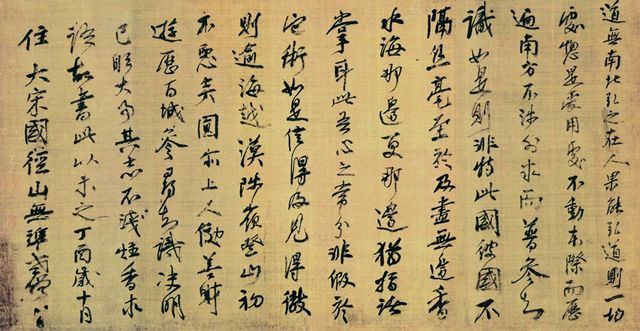 道無南北弘之在人果能弘道則一切
處總是受用處不動本際而歷
遍南方不涉外求而普參知
識如是則非特此國彼國不
隔絲毫至於及盡無邊香
水海那邊更那邊猶指諸
掌耳此吾心之常分非假於
它術如是信得及見得徹
則逾海越漠陟嶺登山初
不惡矣圓爾上人效善財
遊歷百城參尋知識決明
己躬大事其志不淺炷香求
語故書此以示之丁酉歲十月
住大宋國徑山無準